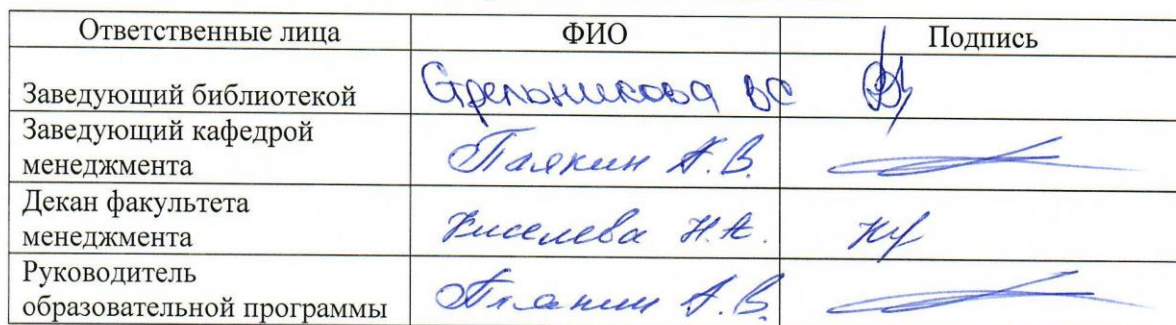 Ответственные лица ФИО Подпись
Заведующий библиотекой Стрельникова ВС
Заведующий кафедрой
менеджмента А.В.
Декан факультета
менеджмента Киселева Н.А.
Руководитель
образовательной программы А.В.